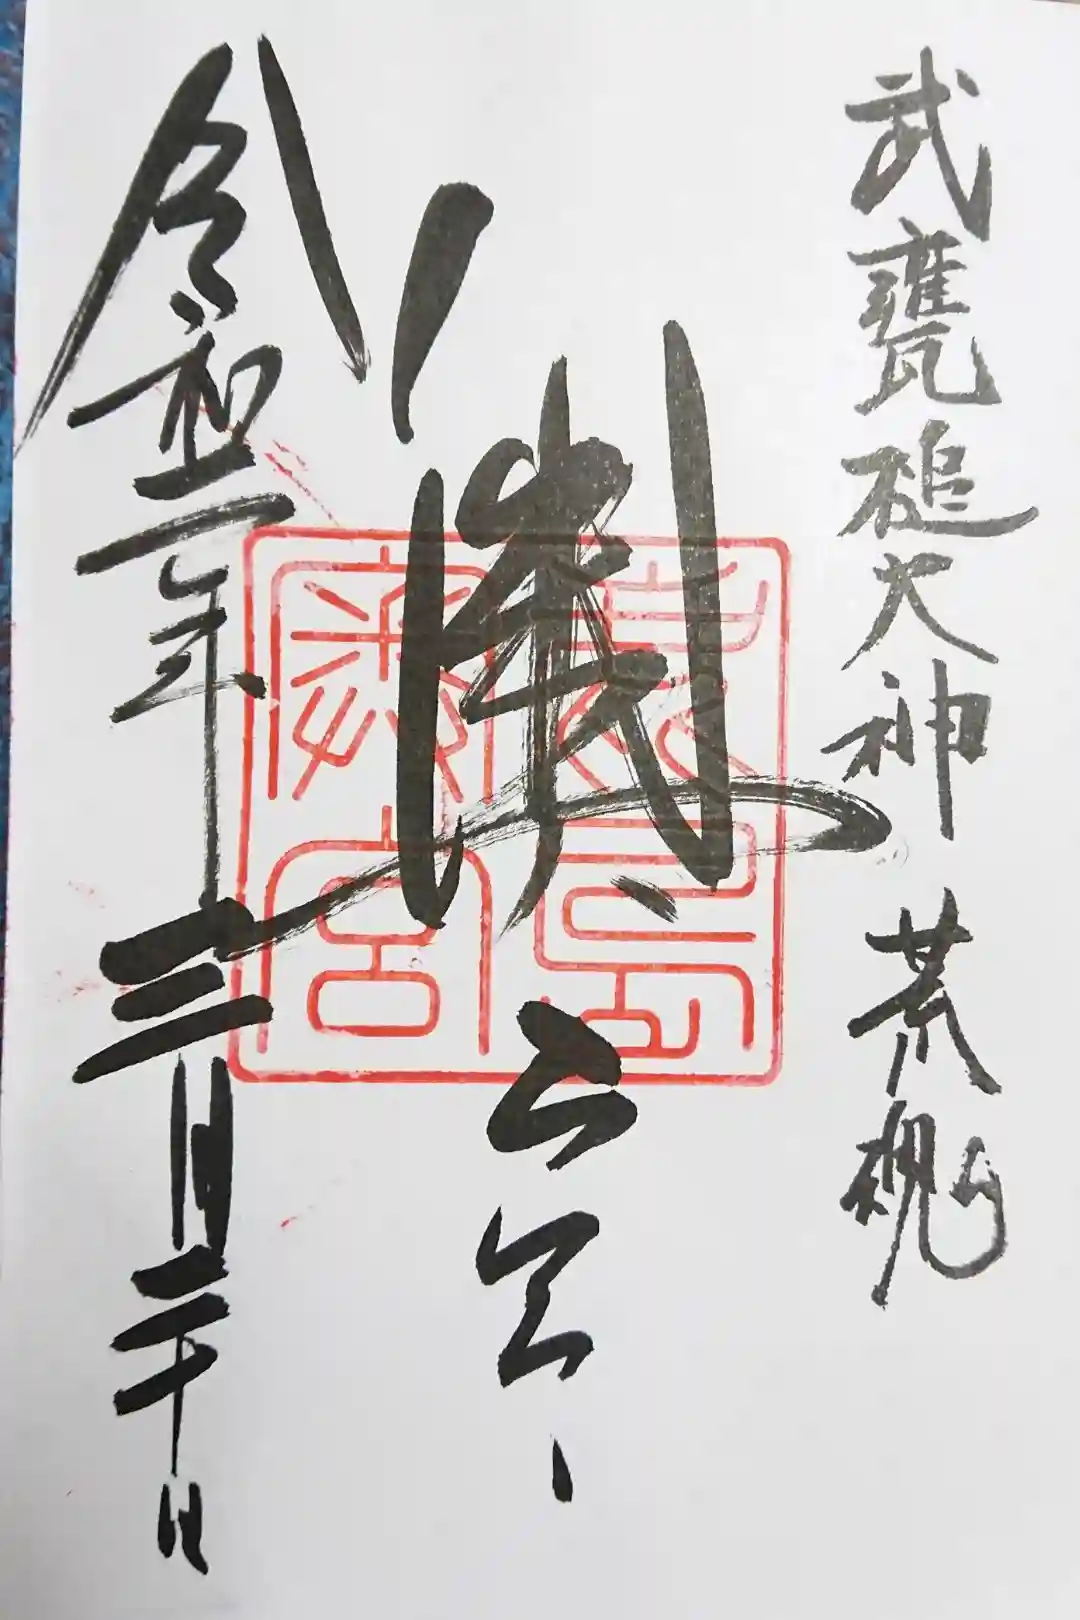 武甕槌大神 荒魂
奥宮
鹿島
奥宮
令和二年三月二十日